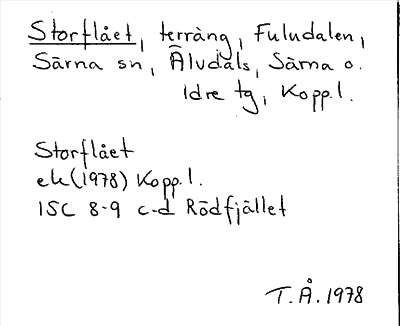 Storflået, terräng, Fuludalen,
Särna sn, Älvdals, Särna o.
Idre tg, Kopp.l.
Storflået
ek (1978) Kopp.l.
15C 8-9 c-d Rödfjället
T.Å. 1978